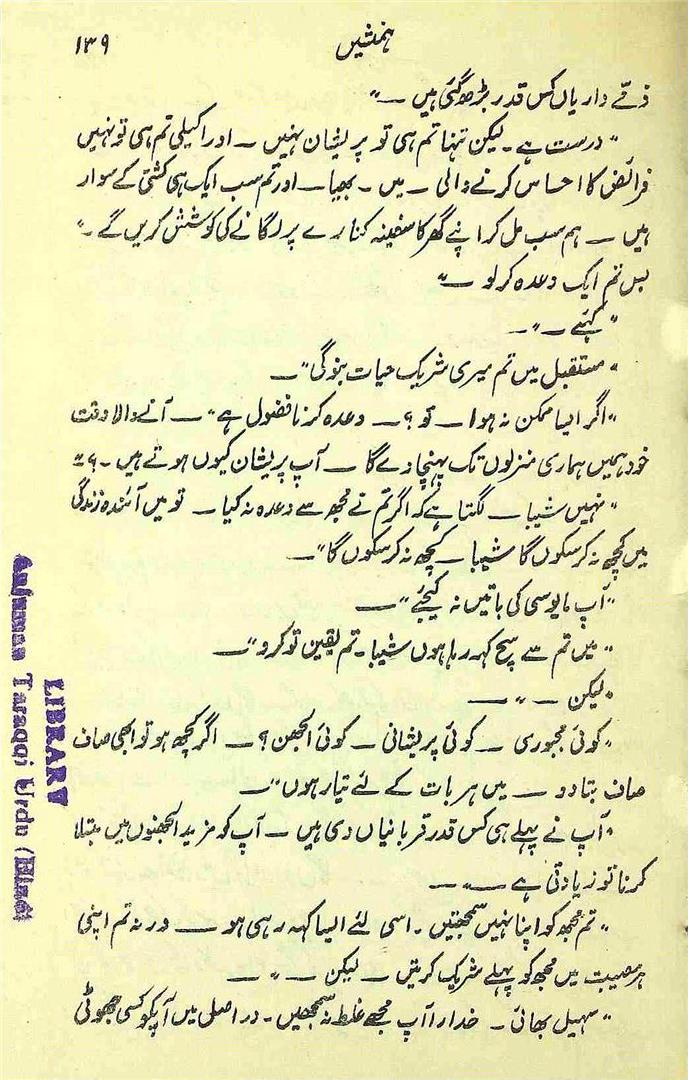 ہمنشیں
۱۳۹
ذمّے داریاں کس قدر بڑھ گئی ہیں —"
"درست ہے۔ لیکن تنہا تم ہی تو پریشان نہیں — اور اکیلی تم ہی تو نہیں
فرائض کا احساس کرنے والی — میں ۔ بھیا — اور تم سب ایک ہی کشتی کے سوار
ہیں — ہم سب مل کر اپنے گھر کا سفینہ کنارے پر لگانے کی کوشش کریں گے ۔"
بس تم ایک وعدہ کر لو —"
"کہئے —"—
"مستقبل میں تم میری شریک حیات بنو گی"—
"اگر ایسا ممکن نہ ہوا — تو ؟ — وعدہ کرنا فضول ہے" — آنے والا وقت
خود ہمیں ہماری منزلوں تک پہنچا دے گا — آپ پریشان کیوں ہوتے ہیں ۔؟"
"نہیں شیبا — لگتا ہے کہ اگر تم نے مجھ سے وعدہ نہ کیا — تو میں آئندہ زندگی
میں کچھ نہ کر سکوں گا شیبا — کچھ نہ کر سکوں گا"—
"آپ مایوسی کی باتیں نہ کیجئے" —
"میں تم سے سچ کہہ رہا ہوں شیبا ۔ تم یقین تو کرو"—
"لیکن —"—
"کوئی مجبوری — کوئی پریشانی — کوئی الجھن ؟ — اگر کچھ ہو تو ابھی صاف
صاف بتا دو — میں ہر بات کے لئے تیار ہوں"—
"آپ نے پہلے ہی کس قدر قربانیاں دی ہیں — آپ کو مزید الجھنوں میں مبتلا
کرنا تو زیادتی ہے —"—
"تم مجھ کو اپنا نہیں سمجھتیں ۔ اسی لئے ایسا کہہ رہی ہو — ورنہ تم اپنی
ہر مصیبت میں مجھ کو پہلے شریک کرتیں — لیکن —"—
"سہیل بھائی — خدارا آپ مجھے غلط نہ سمجھیں ۔ در اصل میں آپ کو کسی جھوٹی
LIBRARY
Anjuman Taraqqi Urdu (Hind)